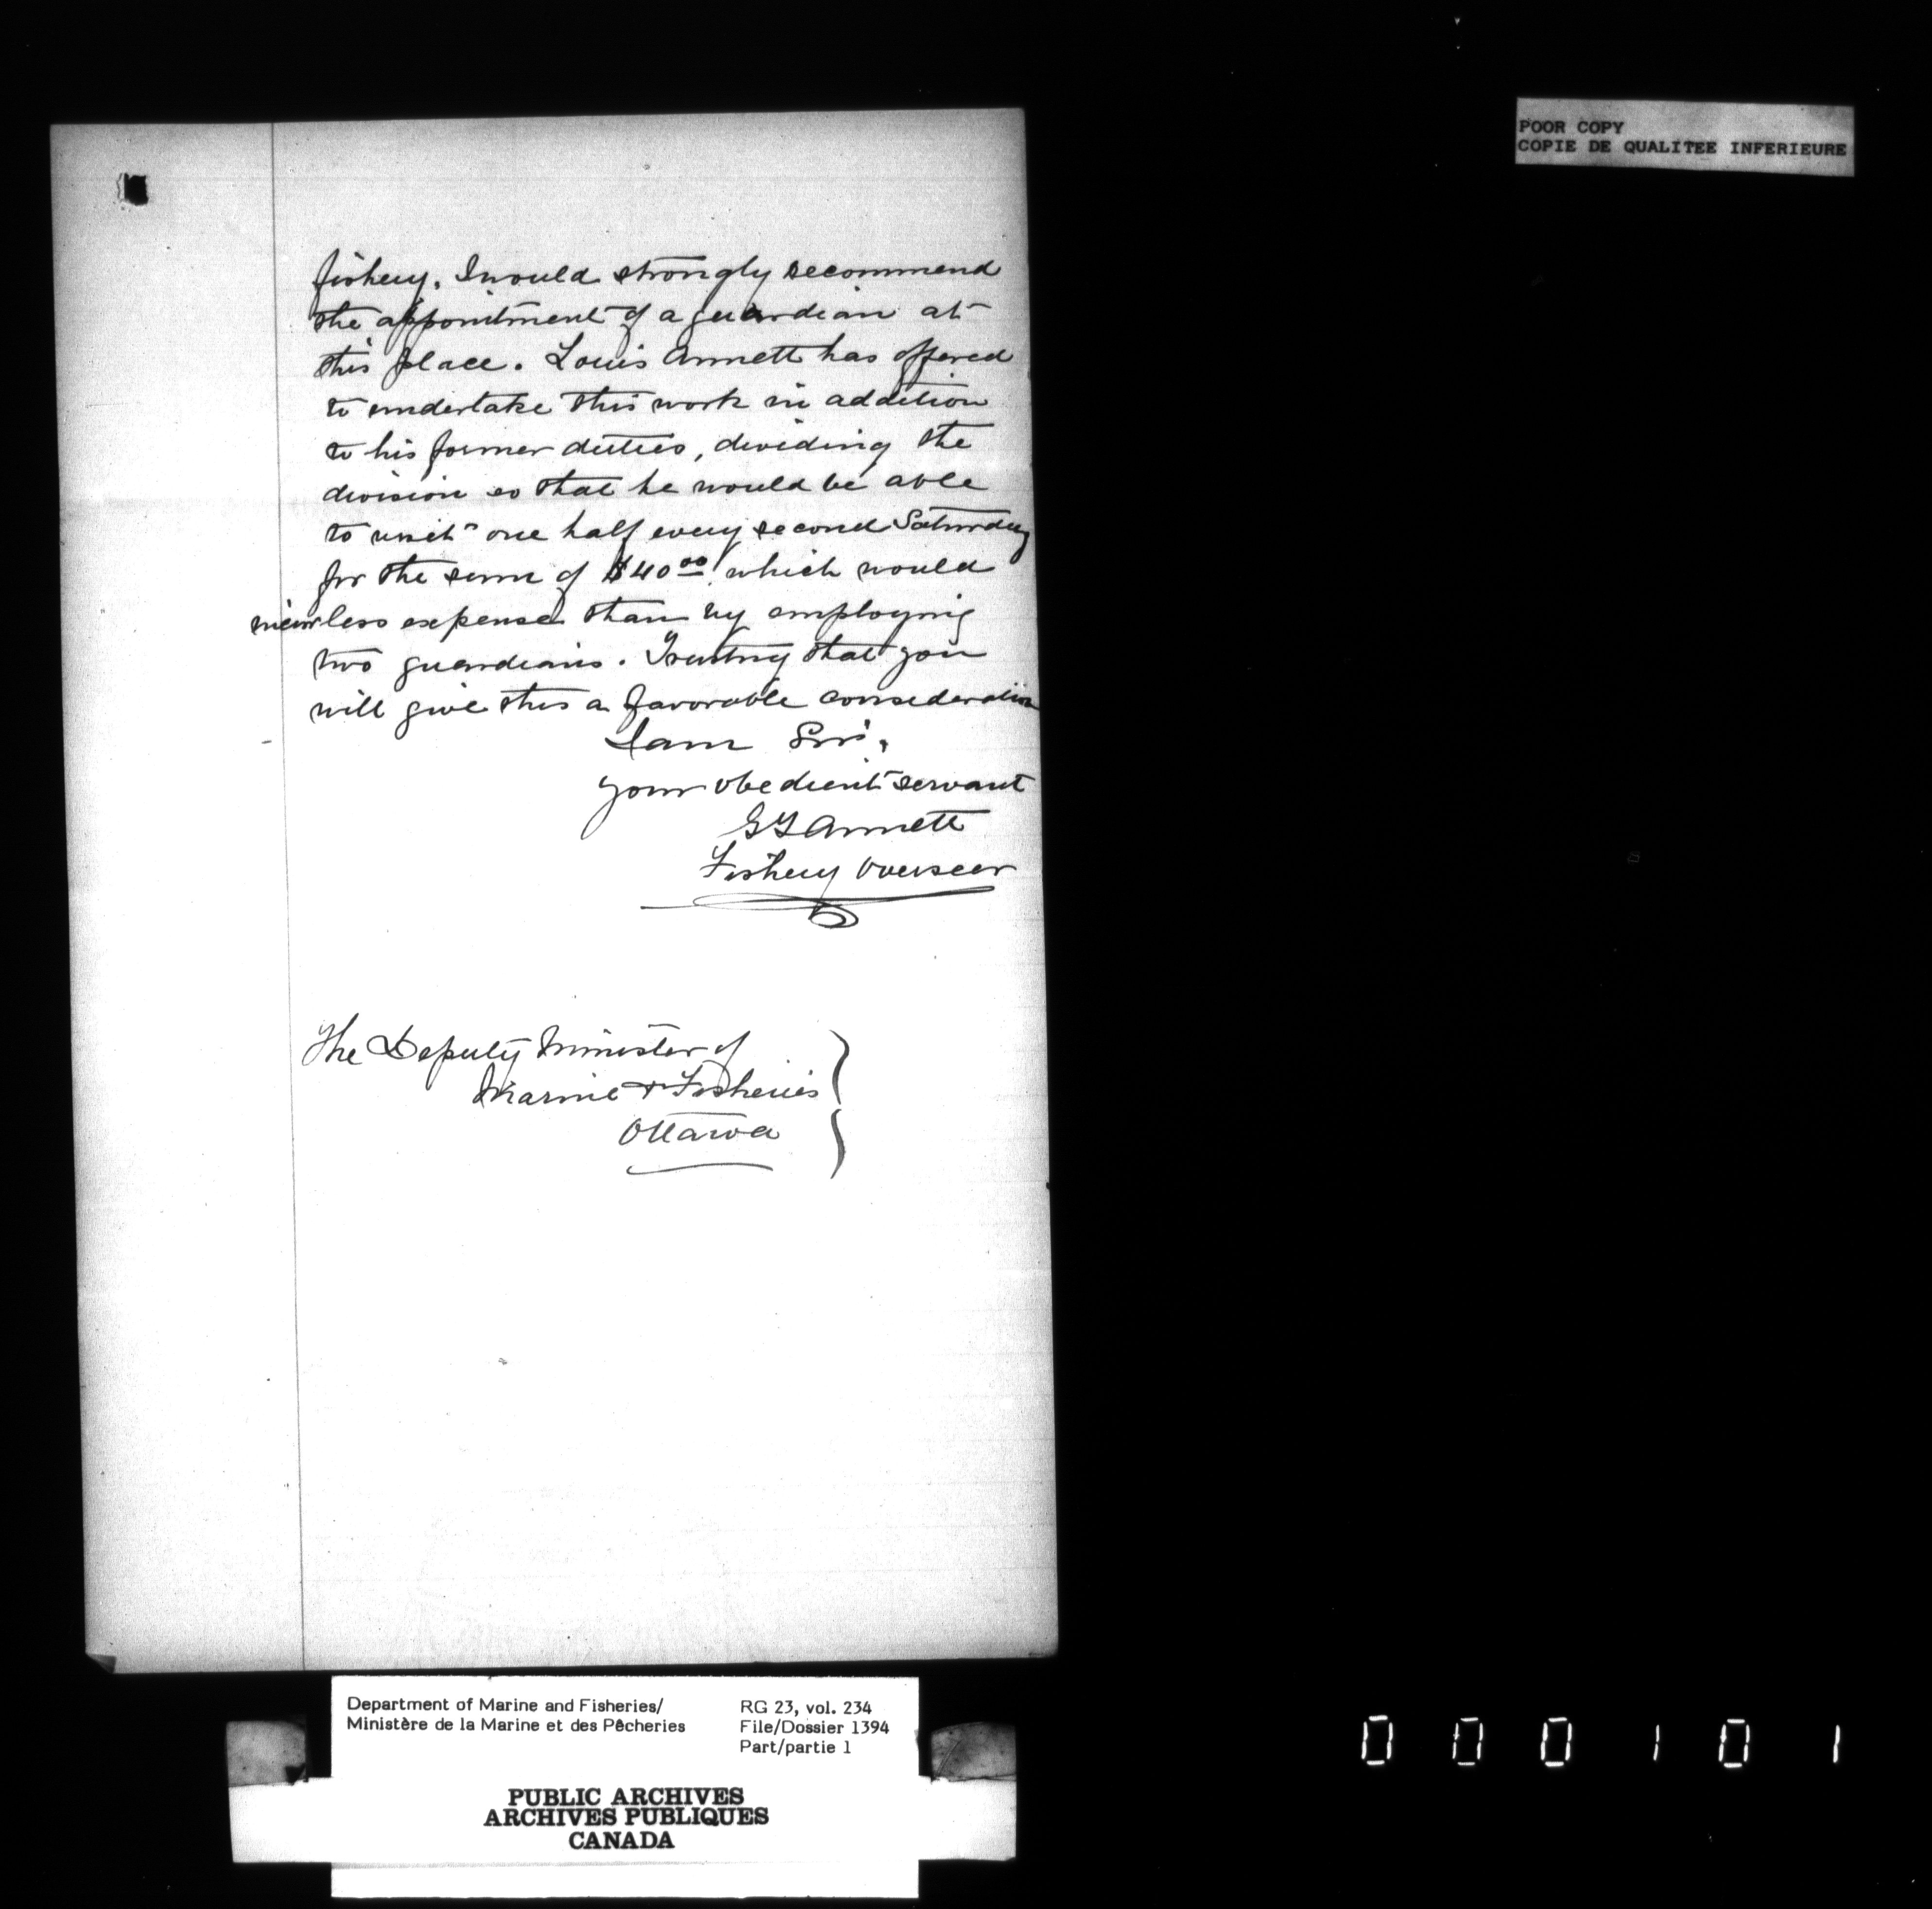 POOR COPY
COPIE DE QUALITEE INFERIEURE
fishery. I would strongly recommend
the appointment of a guardian at
this place. Louis Annett has offered
to undertake this work in addition
to his former duties, dividing the
division so that he would be able
to visit one half every second Saturday
for the sum of $40.00 which would
incur less expense than by employing
two guardians. Trusting that you
will give this a favorable consideration
I am Sir,
your obedient servant
Annett
Fishery Overseer
The Deputy Minister of
Marine & Fisheries
Ottawa
Department of Marine and Fisheries/
Ministère de la Marine et des Pêcheries
RG 23, vol. 234
File/Dossier 1394
Part/partie 1
PUBLIC ARCHIVES
ARCHIVES PUBLIQUES
CANADA
000101